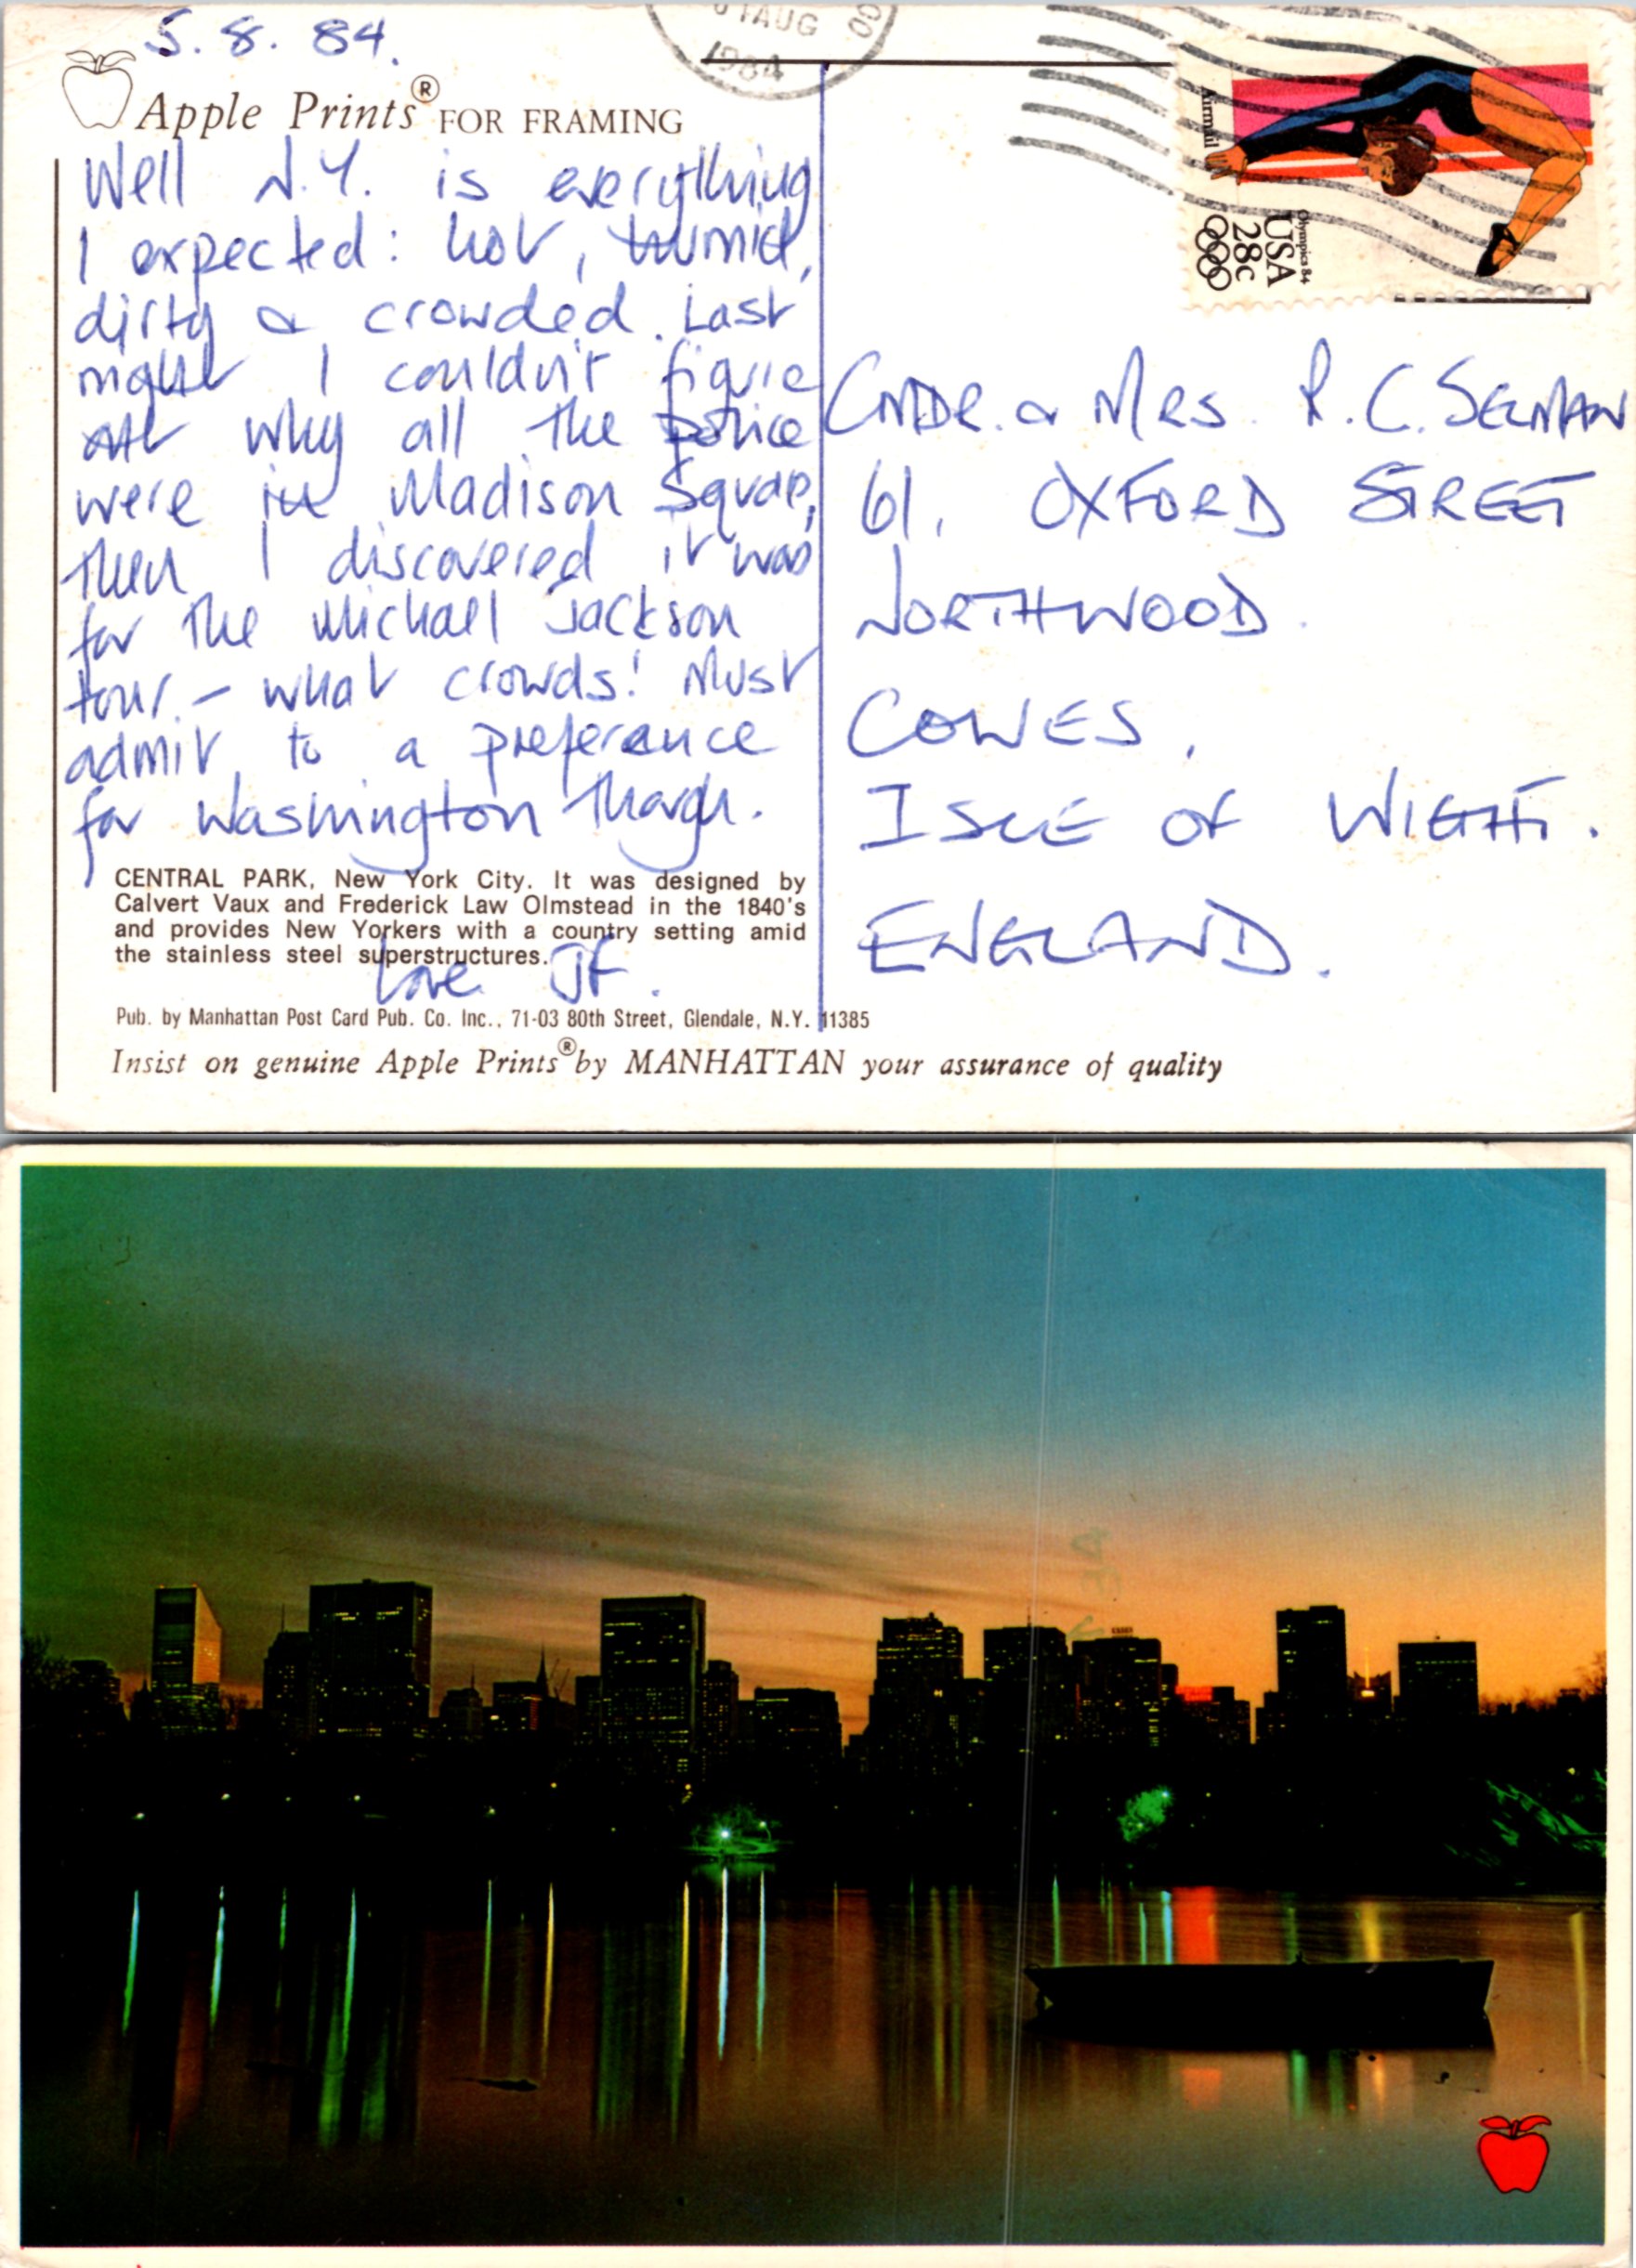 5. 8. 84.
Apple Prints® FOR FRAMING
Well N.Y. is everything
I expected: hot, humid,
dirty & crowded. Last
night I couldn't figure
out why all the police
were in Madison Square,
then I discovered it was
for the Michael Jackson
tour. – what crowds! Must
admit to a preference
for Washington though.
CENTRAL PARK, New York City. It was designed by
Calvert Vaux and Frederick Law Olmstead in the 1840's
and provides New Yorkers with a country setting amid
the stainless steel superstructures.
Love JF.
Pub. by Manhattan Post Card Pub. Co. Inc., 71-03 80th Street, Glendale, N.Y. 11385
Insist on genuine Apple Prints® by MANHATTAN your assurance of quality
AUG
1984
Airmail
Olympics 84
USA
28c
CMDR. & MRS. R. C. SELMAN
61, OXFORD STREET
NORTHWOOD.
COWES,
ISLE OF WIGHT.
ENGLAND.